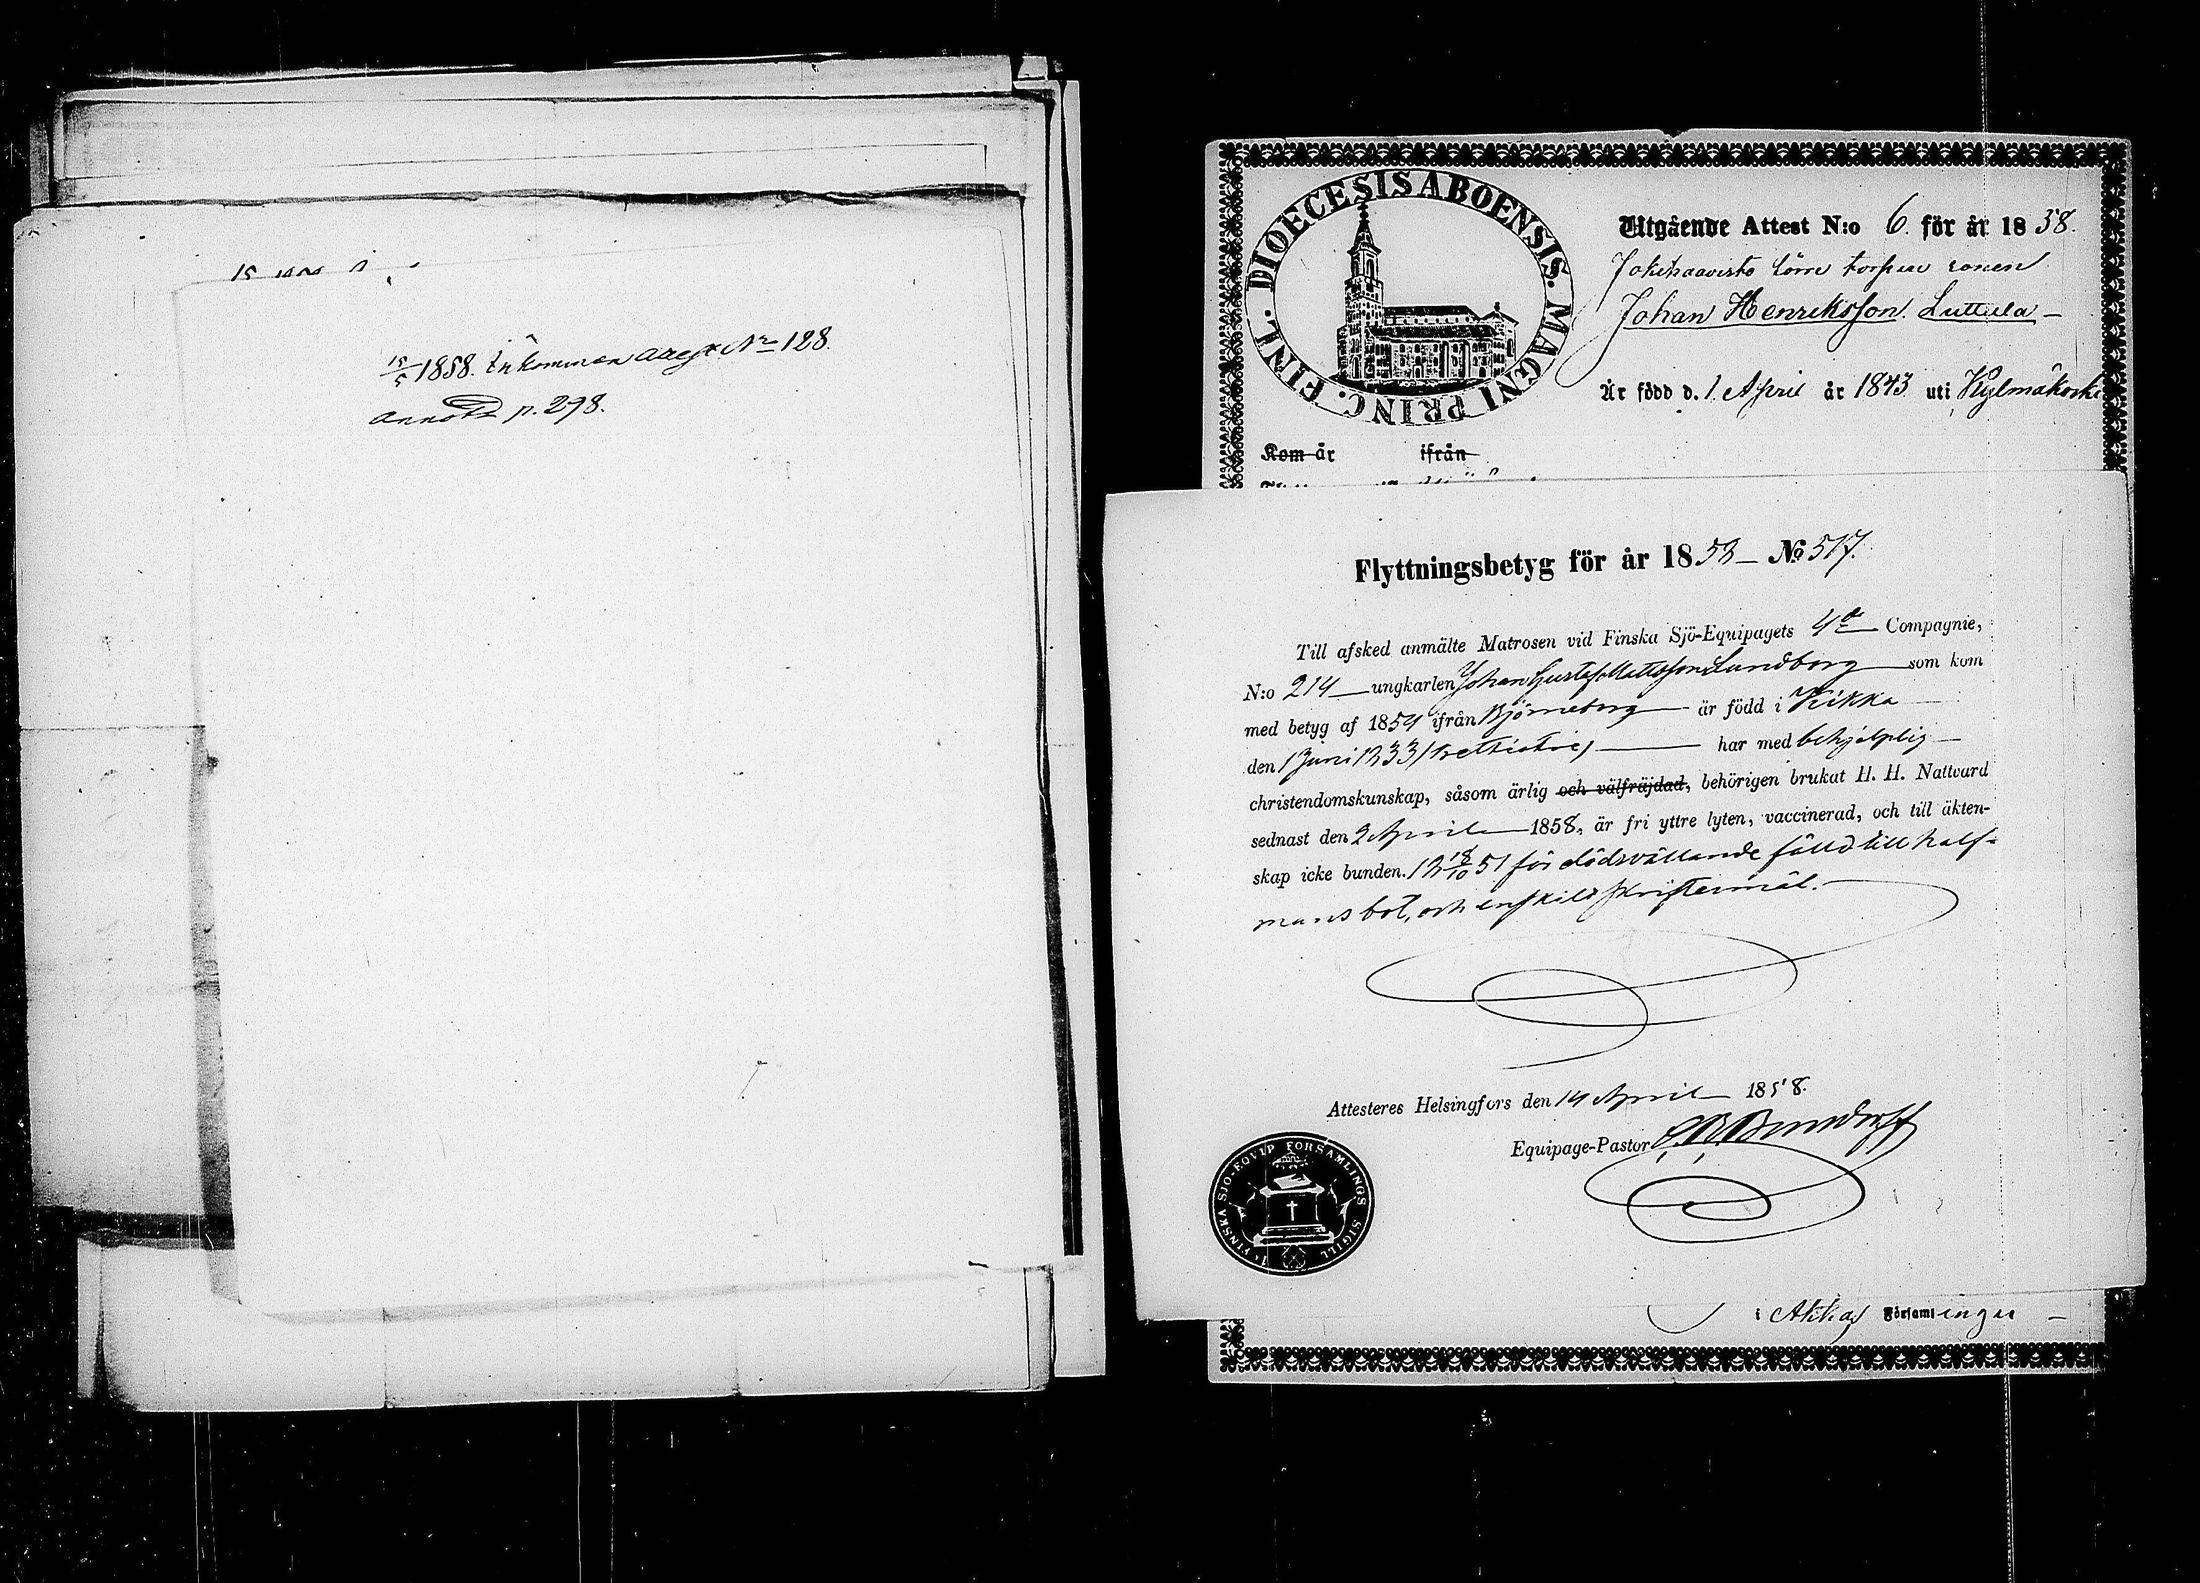 15/5 1858. Inkommen attest No 128.
annots p. 298.
DIOECESIS ABOENSIS. MAGNI PRINC. FINL.
Utgående Attest N:o 6. för år 1858.
torpare sonen
Johan Henriksson Luttula
Är född d. 1 April år 1843 uti Kylmäkoski
Kom år ifrån
Flyttningsbetyg för år 1858 No 517.
Till afsked anmälte Matrosen vid Finska Sjö-Equipagets 4de Compagnie,
N:o 214 ungkarlen Johan Gustaf Mattsson Lundborg som kom
med betyg af 1854 ifrån Björneborg är född i Kikka
den 1 Juni 1833 (trettiotre) har med behjelplig
christendomskunskap, såsom ärlig och välfräjdad, behörigen brukat H. H. Nattvard
sednast den 2 April 1858, är fri yttre lyten, vaccinerad, och till äkten-
skap icke bunden. 18 18/10 51 för dödsvållande fälld till half-
mansbot, och enskildt skriftermål.
Attesteres Helsingfors den 14 April 1858.
Equipage-Pastor
FINSKA SJÖ-EQVIP FÖRSAMLINGS SIGILL
i Akkas Församlingen